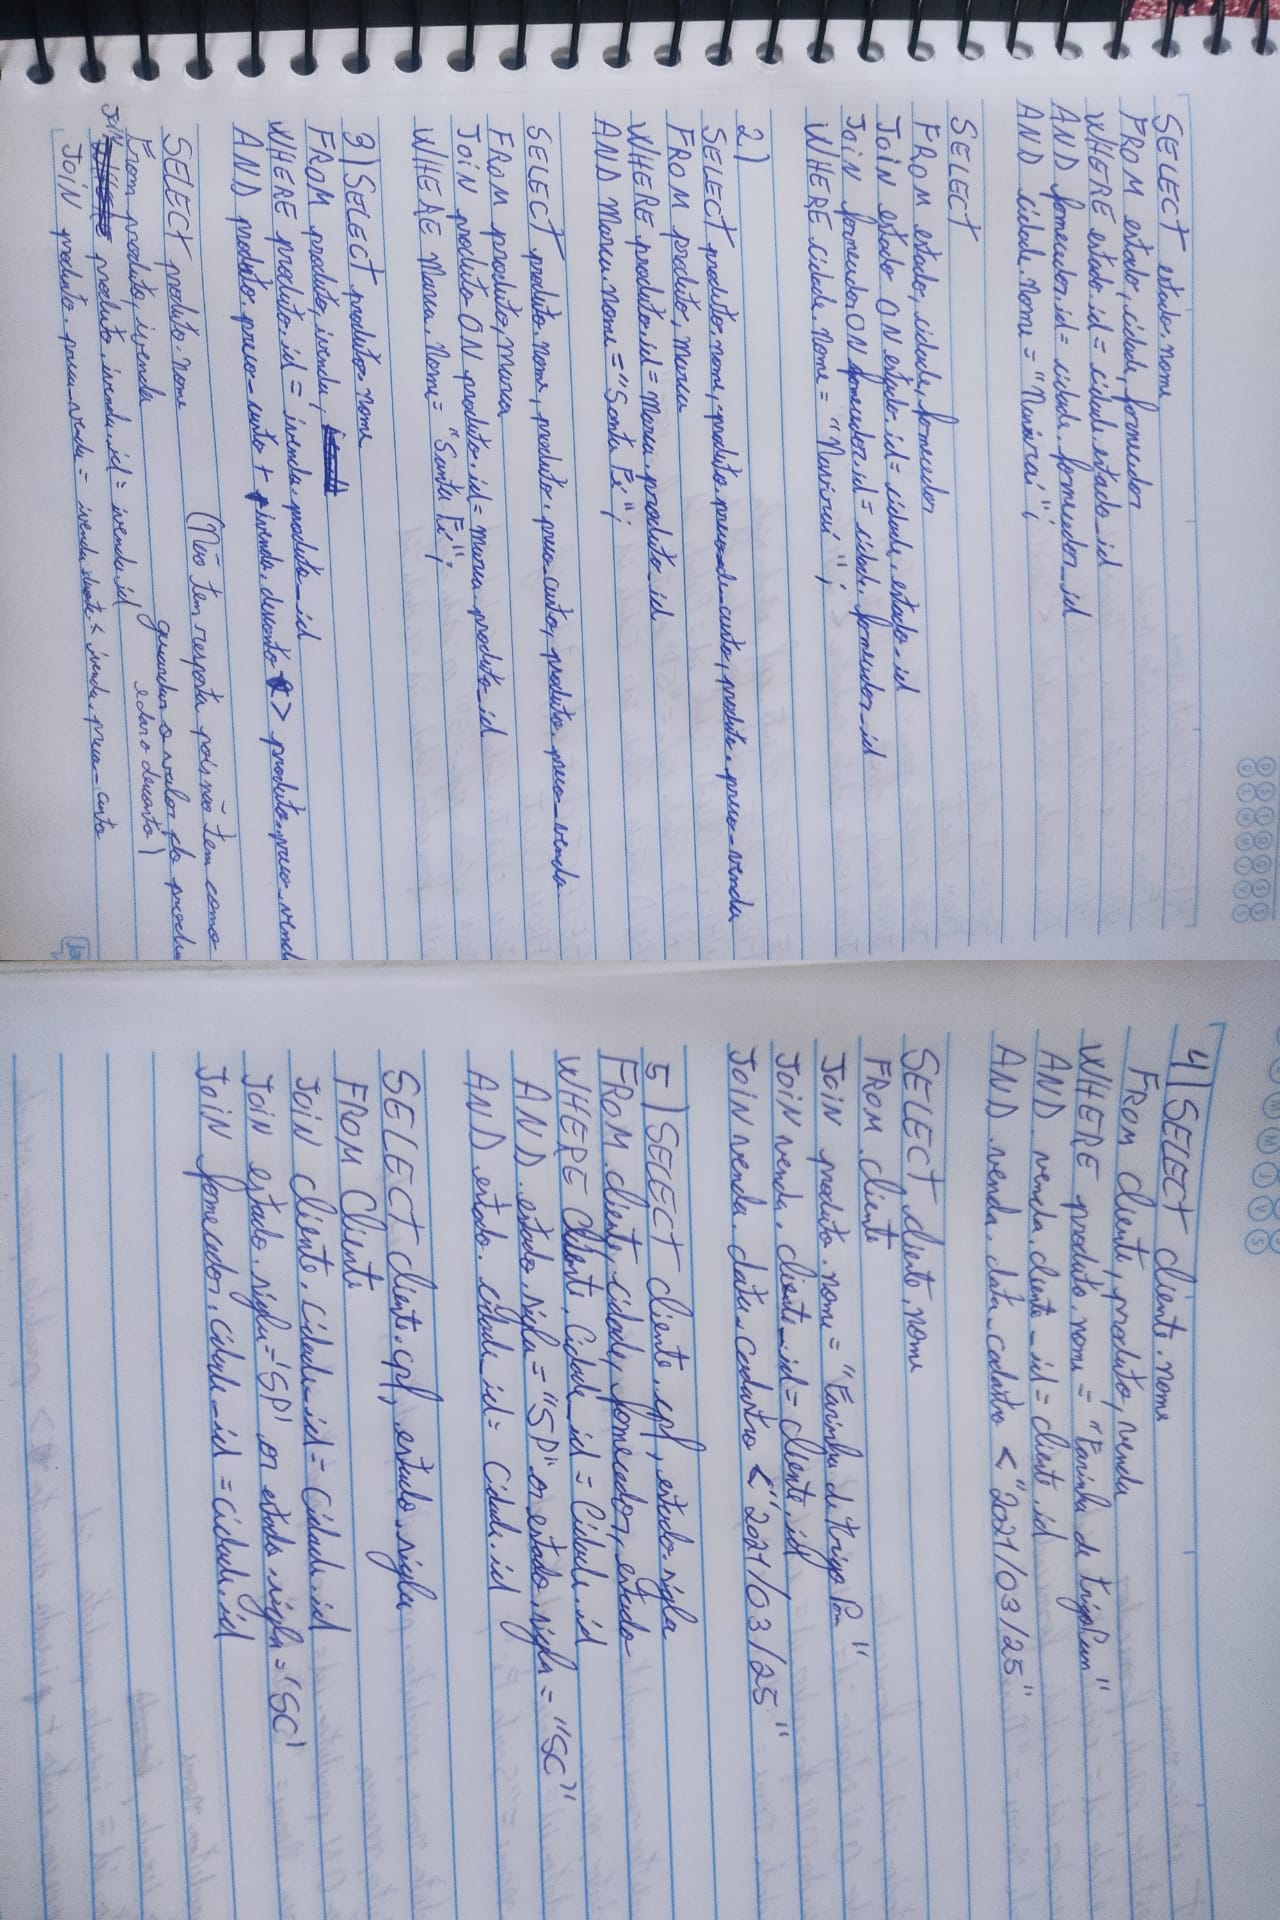 SELECT estado.nome
FROM estado, cidade, fornecedor
WHERE estado.id = cidade.estado_id
AND fornecedor.id = cidade.fornecedor_id
AND cidade.nome = "Naviraí";
SELECT
FROM estado, cidade, fornecedor
Join estado ON estado.id = cidade.estado_id
Join fornecedor ON fornecedor.id = cidade.fornecedor_id
WHERE cidade.nome = "Naviraí";
2)
SELECT produto.nome, produto.preco_de_custo, produto.preco_venda
FROM produto, marca
WHERE produto.id = marca.produto_id
AND marca.nome = "Santa Fé";
SELECT produto.nome, produto.preco_custo, produto.preco_venda
FROM produto, marca
JOIN produto ON produto.id = marca.produto_id
WHERE marca.nome = "Santa Fé";
3) SELECT produto.nome
FROM produto, ivenda,
WHERE produto.id = ivenda.produto_id
AND produto.preco_custo + ivenda.desconto > produto.preco_vend
(Não tem resposta pois não tem como
SELECT produto.nome
guardar o valor do produ
From produto, ivenda
e do desconto)
JOIN produto.ivenda_id = ivenda.id
JOIN produto.preco_venda = ivenda.desconto < ivenda.preco_custo
4) SELECT cliente.nome
FROM cliente, produto, venda
WHERE produto.nome = "Farinha de trigo
AND venda.cliente_id = cliente.id
AND venda.data_cadastro < "2021/03/25"
SELECT cliente.nome
FROM cliente
JOIN produto.nome = "Farinha de trigo
JOIN venda.cliente_id = cliente.id
JOIN venda.data_cadastro < "2021/03/25"
5) SELECT cliente.cpf, estado.sigla
FROM cliente, cidade, fornecedor, estado
WHERE cliente.cidade_id = cidade.id
AND estado.sigla = "SP" or estado.sigla = "SC"
AND estado.cidade_id = cidade.id
SELECT cliente.cpf, estado.sigla
FROM Cliente
JOIN cliente.cidade_id = cidade.id
JOIN estado.sigla = 'SP' or estado.sigla = 'SC'
JOIN fornecedor.cidade_id = cidade.id